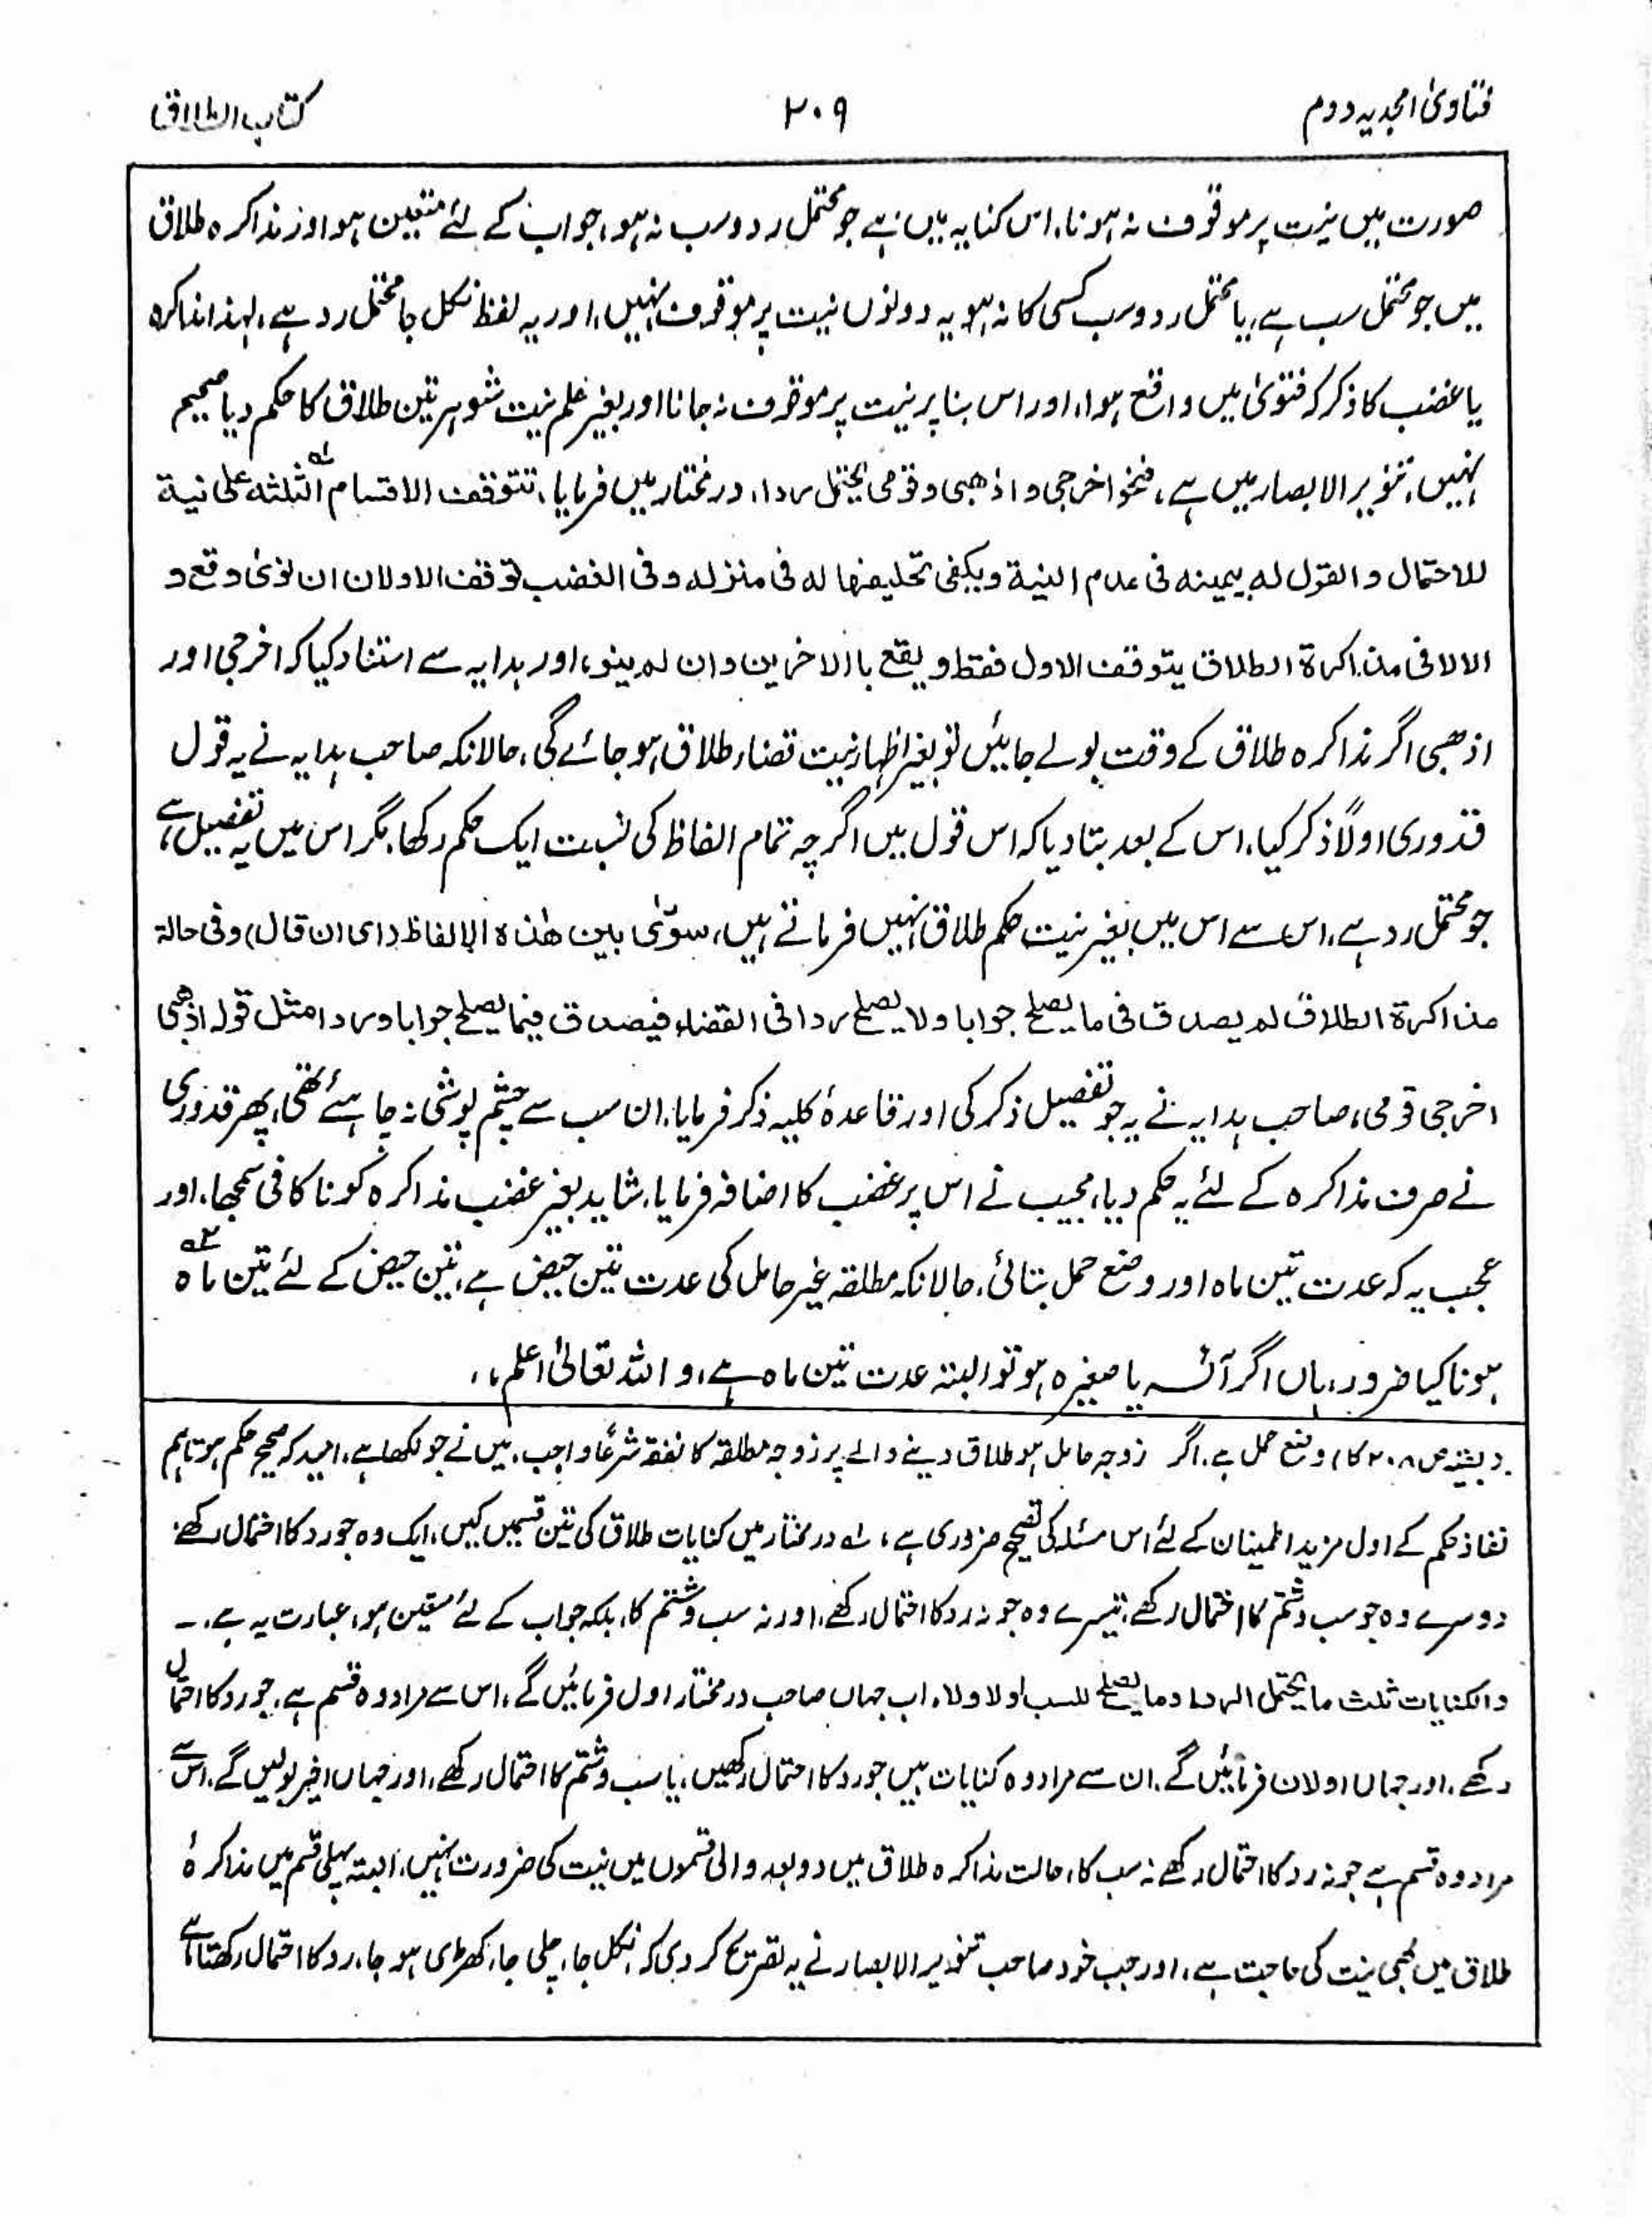 فتاویٰ امجدیہ دوم
۲۰۹
کتاب الطلاق
صورت میں نیت پر موقوف نہ ہونا، اس کنایہ میں ہے جو محتمل رد وسب نہ ہو، جواب کے لئے متعین ہو اور مذاکرہ طلاق
میں جو محتمل سب ہے، یا محتمل رد وسب کسی کا نہ ہو یہ دونوں نیت پر موقوف نہیں، اور یہ لفظ نکل جا محتمل رد ہے، لہذا مذاکرہ
یا غضب کا ذکر کہ فتویٰ میں واقع ہوا، اور اس بنا پر نیت پر موقوف نہ جانا اور بغیر علم نیت شوہر تین طلاق کا حکم دیا صحیح
نہیں، تنویر الابصار میں ہے، فنحو اخرجی و اذھبی وقومی یحتمل ردا، در مختار میں فرمایا، تتوقف الاقسام الثلثة علی نیة
للاحتمال و القول له بیمینه فی عدم النیة ویکفی تحلیفها له فی منزله وفی الغضب توقف الاولان ان نویٰ وقع و
الا لا فی مذاکرة الطلاق یتوقف الاول فقط و یقع بالاخرین وان لم ینو، اور ہدایہ سے استناد کیا کہ اخرجی اور
اذھبی اگر مذاکرہ طلاق کے وقت بولے جائیں تو بغیر اظہار نیت قضاء طلاق ہو جائے گی، حالانکہ صاحب ہدایہ نے یہ قول
قدوری اولاً ذکر کیا، اس کے بعد بتا دیا کہ اس قول میں اگرچہ تمام الفاظ کی نسبت ایک حکم رکھا، مگر اس میں یہ تفصیل ہے
جو محتمل رد ہے، اس سے اس میں بغیر نیت حکم طلاق نہیں فرماتے ہیں، سوّیٰ بین ھٰذہ الالفاظ (ای ان قال) وفی حالة
مذاکرة الطلاق لم یصدق فی ما یصلح جوابا ولا یصلح ردا فی القضاء فیصدق فیما یصلح جوابا وردا مثل قوله اذھبی
اخرجی قومی، صاحب ہدایہ نے یہ جو تفصیل ذکر کی اور قاعدۂ کلیہ ذکر فرمایا، ان سب سے چشم پوشی نہ چاہئے تھی، پھر قدوری
نے صرف مذاکرہ کے لئے یہ حکم دیا، مجیب نے اس پر غضب کا اضافہ فرمایا، شاید بغیر غضب مذاکرہ کو ناکافی سمجھا، اور
عجب یہ کہ عدت تین ماہ اور وضع حمل بتائی، حالانکہ مطلقہ غیر حامل کی عدت تین حیض ہے، تین حیض کے لئے تین ماہ ۲ھ
ہونا کیا ضرور، ہاں اگر آئسہ یا صغیرہ ہو تو البتہ عدت تین ماہ ہے، و اللہ تعالیٰ اعلم،،
(بقیہ ص ۲۰۸ کا) وضع حمل ہے. اگر زوجہ حامل ہو طلاق دینے والے پر زوجہ مطلقہ کا نفقہ شرعاً واجب، میں نے جو لکھا ہے، امید کہ صحیح حکم ہو تاہم
نفاذ حکم کے اول مزید اطمینان کے لئے اس مسئلہ کی تصحیح ضروری ہے، ۱ھ در مختار میں کنایات طلاق کی تین قسمیں کیں، ایک وہ جو رد کا احتمال رکھے،
دوسرے وہ جو سب وشتم کا احتمال رکھے، تیسرے وہ جو نہ رد کا احتمال رکھے، اور نہ سب وشتم کا، بلکہ جواب کے لئے متعین ہو، عبارت یہ ہے، ۔
والکنایات ثلث ما یحتمل الرد او ما یصلح للسب او لا ولا، اب جہاں صاحب در مختار اول فرمائیں گے، اس سے مراد وہ قسم ہے، جو رد کا احتمال
رکھے، اور جہاں اولان فرمائیں گے، ان سے مراد وہ کنایات ہیں جو رد کا احتمال رکھیں، یا سب وشتم کا احتمال رکھے، اور جہاں اخیر بولیں گے، اس سے
مراد وہ قسم ہے جو نہ رد کا احتمال رکھے نہ سب کا، حالت مذاکرہ طلاق میں دو بعد والی قسموں میں نیت کی ضرورت نہیں، البتہ پہلی قسم میں مذاکرۂ
طلاق میں بھی نیت کی حاجت ہے، اور جب خود صاحب تنویر الابصار نے یہ تصریح کر دی کہ، نکل جا، چلی جا، کھڑی ہو جا، رد کا احتمال رکھتا ہے